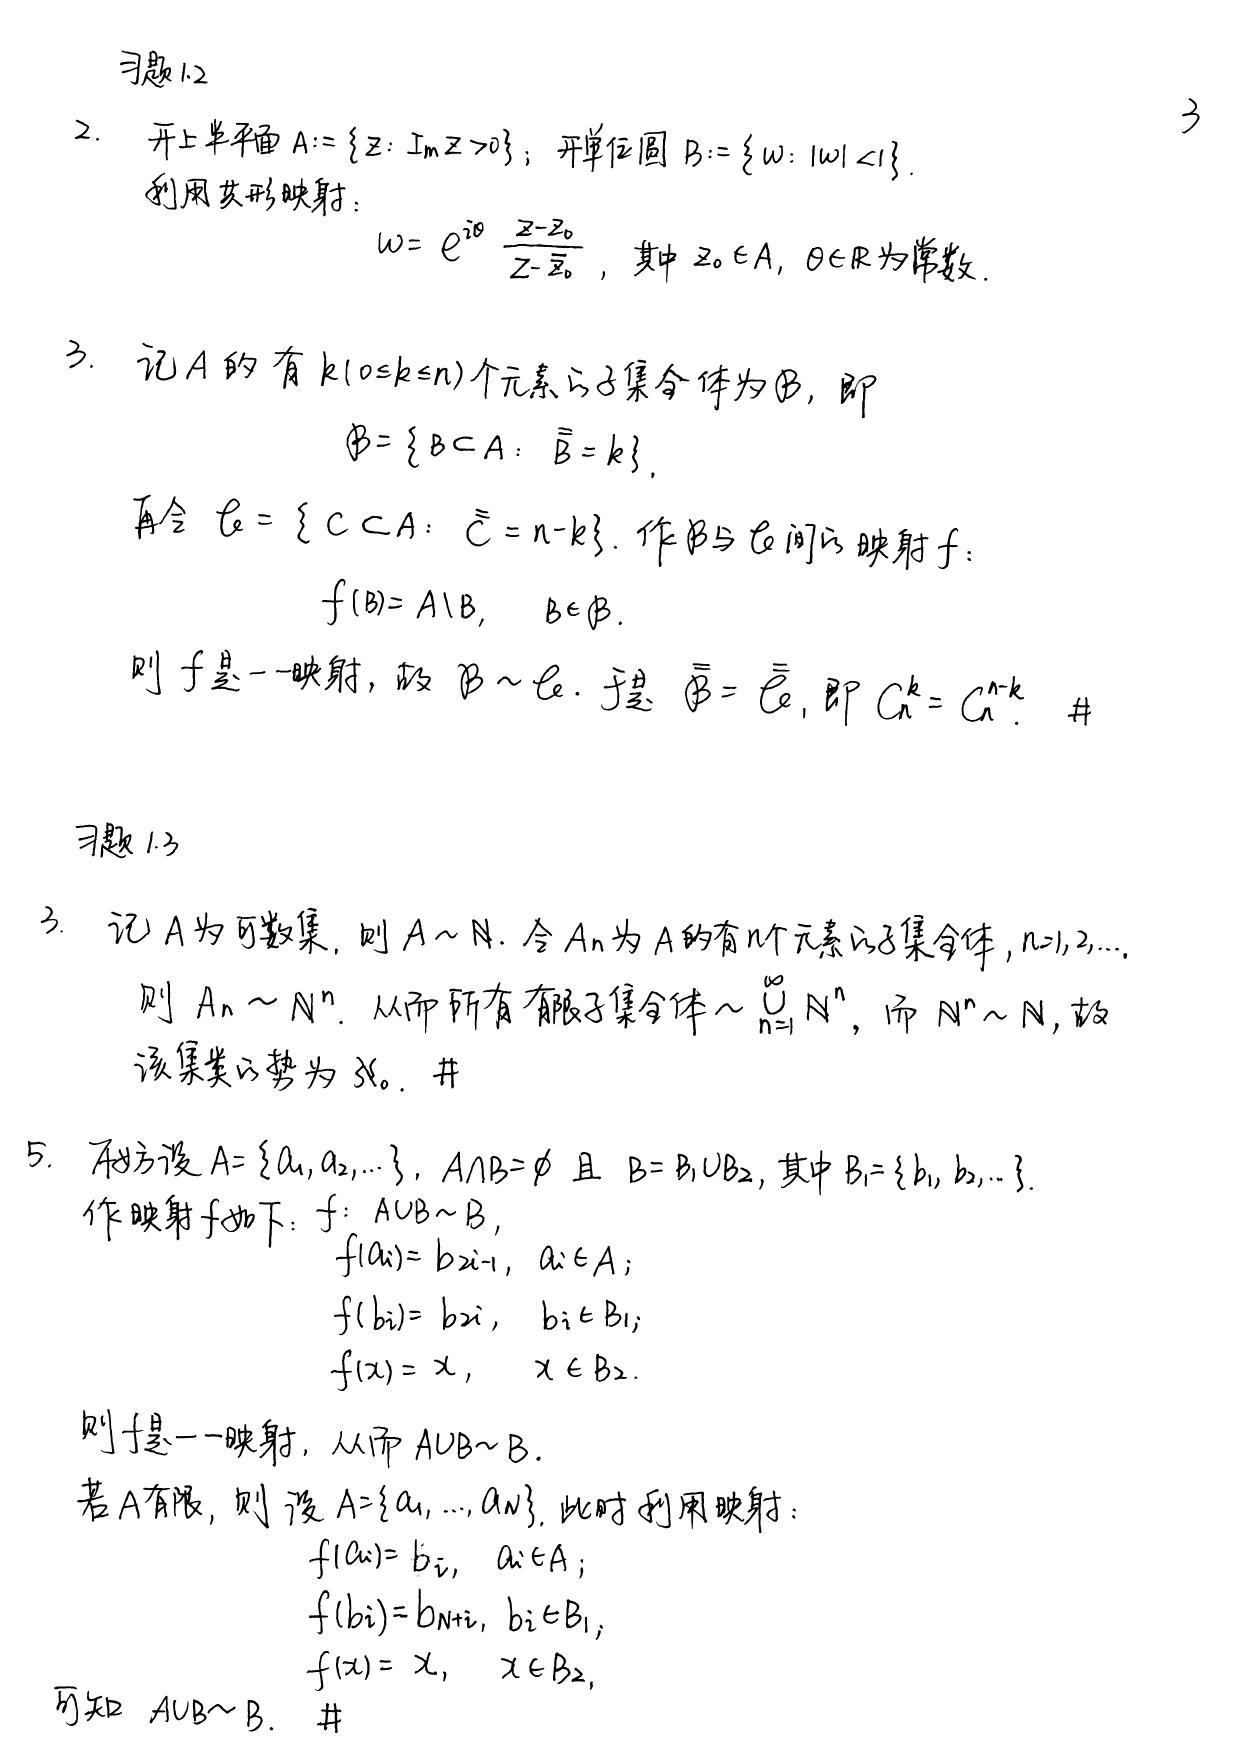 习题1.2
3
2. 开上半平面 A:={z: Im z>0}; 开单位圆 B:={w: |w|<1}.
利用共形映射:
w= e^{iθ} \frac{z-z_0}{z-\bar{z}_0}, 其中 z_0∈A, θ∈ℝ为常数.
3. 记A的有k(0≤k≤n)个元素的子集全体为ℬ, 即
ℬ={B⊂A: \bar{\bar{B}}=k}.
再令 𝒞={C⊂A: \bar{\bar{C}}=n-k}. 作ℬ与𝒞间的映射f:
f(B)=A\B, B∈ℬ.
则f是一一映射, 故 ℬ~𝒞. 于是 \bar{\bar{ℬ}}=\bar{\bar{𝒞}}, 即 C_n^k=C_n^{n-k}. #
习题1.3
3. 记A为可数集, 则A~ℕ. 令A_n为A的有n个元素的子集全体, n=1,2,….
则 A_n~ℕ^n. 从而所有有限子集全体~⋃_{n=1}^∞ ℕ^n, 而 ℕ^n~ℕ, 故
该集类的势为ℵ_0. #
5. 不妨设A={a_1,a_2,…}, A∩B=∅ 且 B=B_1∪B_2, 其中B_1={b_1,b_2,…}.
作映射f如下: f: A∪B~B,
f(a_i)=b_{2i-1}, a_i∈A;
f(b_i)=b_{2i}, b_i∈B_1;
f(x)=x, x∈B_2.
则f是一一映射, 从而A∪B~B.
若A有限, 则设A={a_1,…,a_N}. 此时利用映射:
f(a_i)=b_i, a_i∈A;
f(b_i)=b_{N+i}, b_i∈B_1;
f(x)=x, x∈B_2,
可知 A∪B~B. #